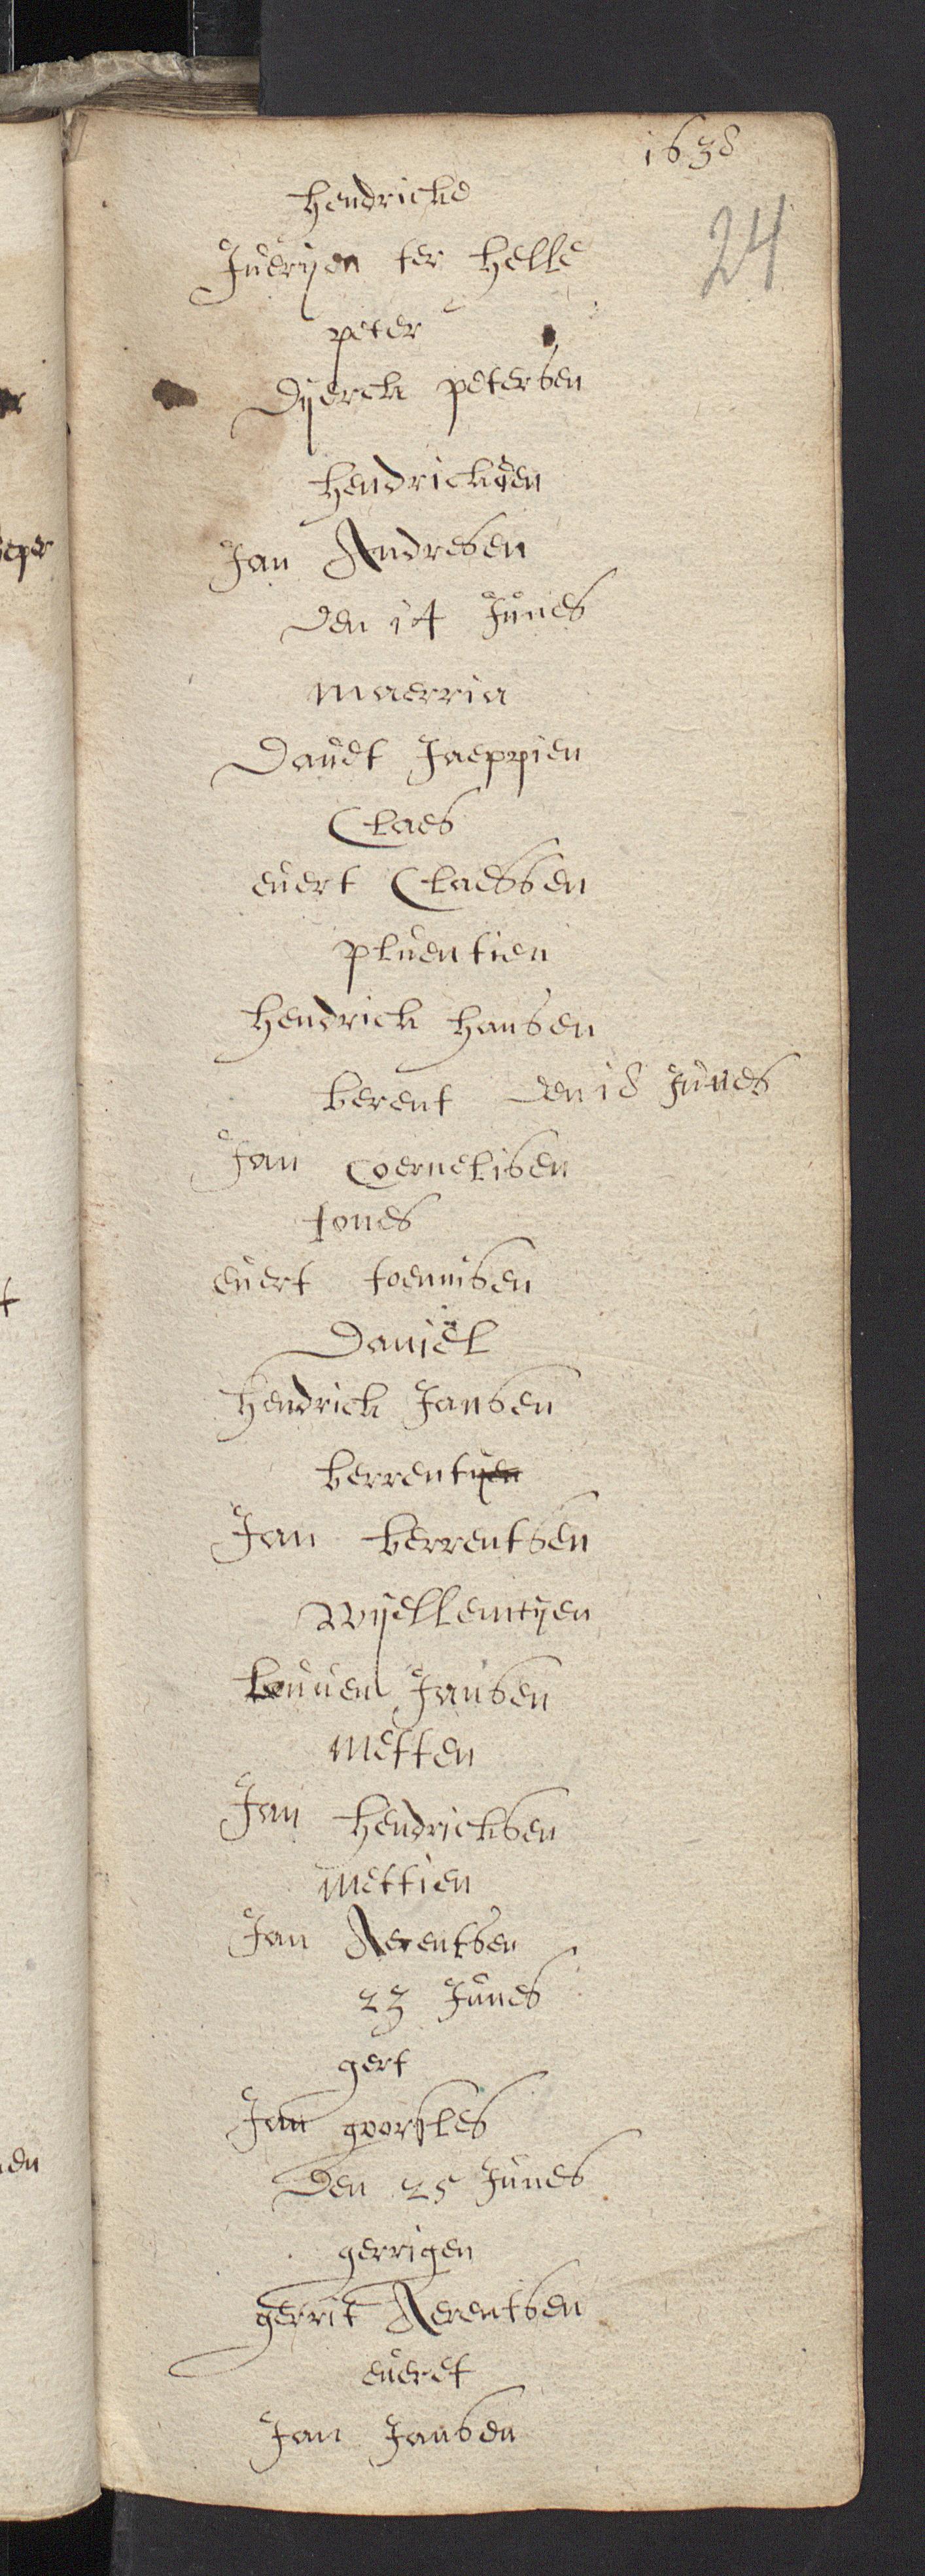 1638
24
hendricke
Juerijen ter helle
peter
Dijerck petersen
hendrickien
Jan Andresen
den 14 Junes
maerria
Dauet Jaeppien
Claes
euert Claessen
pluentien
hendrick hansen
berent den 18 Junes
Jan Coernelisen
tones
euert toennisen
Daniel
hendrick Jansen
berrentijen
Jan berrentsen
Wijellemtijen
Jansen
metten
Jan hendricksen
mettien
Jan Aerentsen
23 Junes
gert
Jan
Den 25 Junes
gerrigen
gerrit Aerentsen
eueret
Jan Jansen